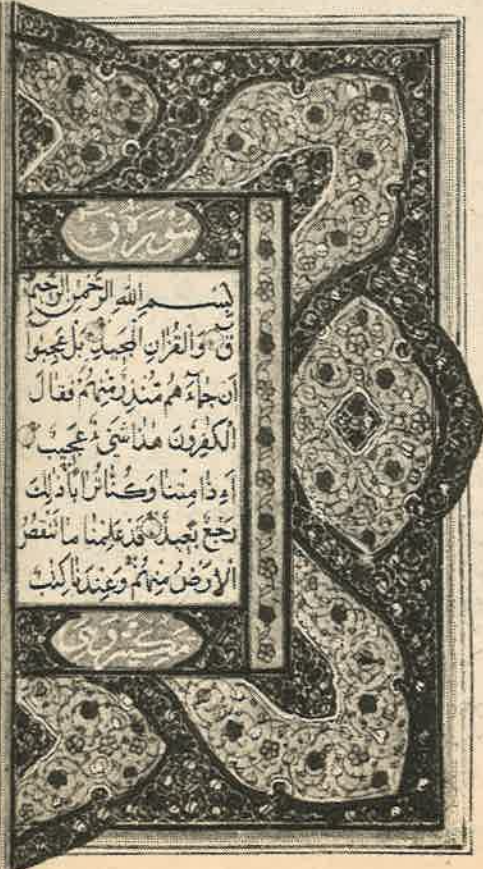 سورة ق
بِسْمِ اللهِ الرَّحْمٰنِ الرَّحِيمِ
قٓ وَالْقُرْاٰنِ الْمَجِيدِ بَلْ عَجِبُوا
اَنْ جَاۤءَهُمْ مُنْذِرٌ مِنْهُمْ فَقَالَ
الْكٰفِرُونَ هٰذَا شَيْءٌ عَجِيبٌ
ءَاِذَا مِتْنَا وَكُنَّا تُرَابًا ذٰلِكَ
رَجْعٌ بَعِيدٌ قَدْ عَلِمْنَا مَا تَنْقُصُ
الْاَرْضُ مِنْهُمْ وَعِنْدَنَا كِتٰبٌ